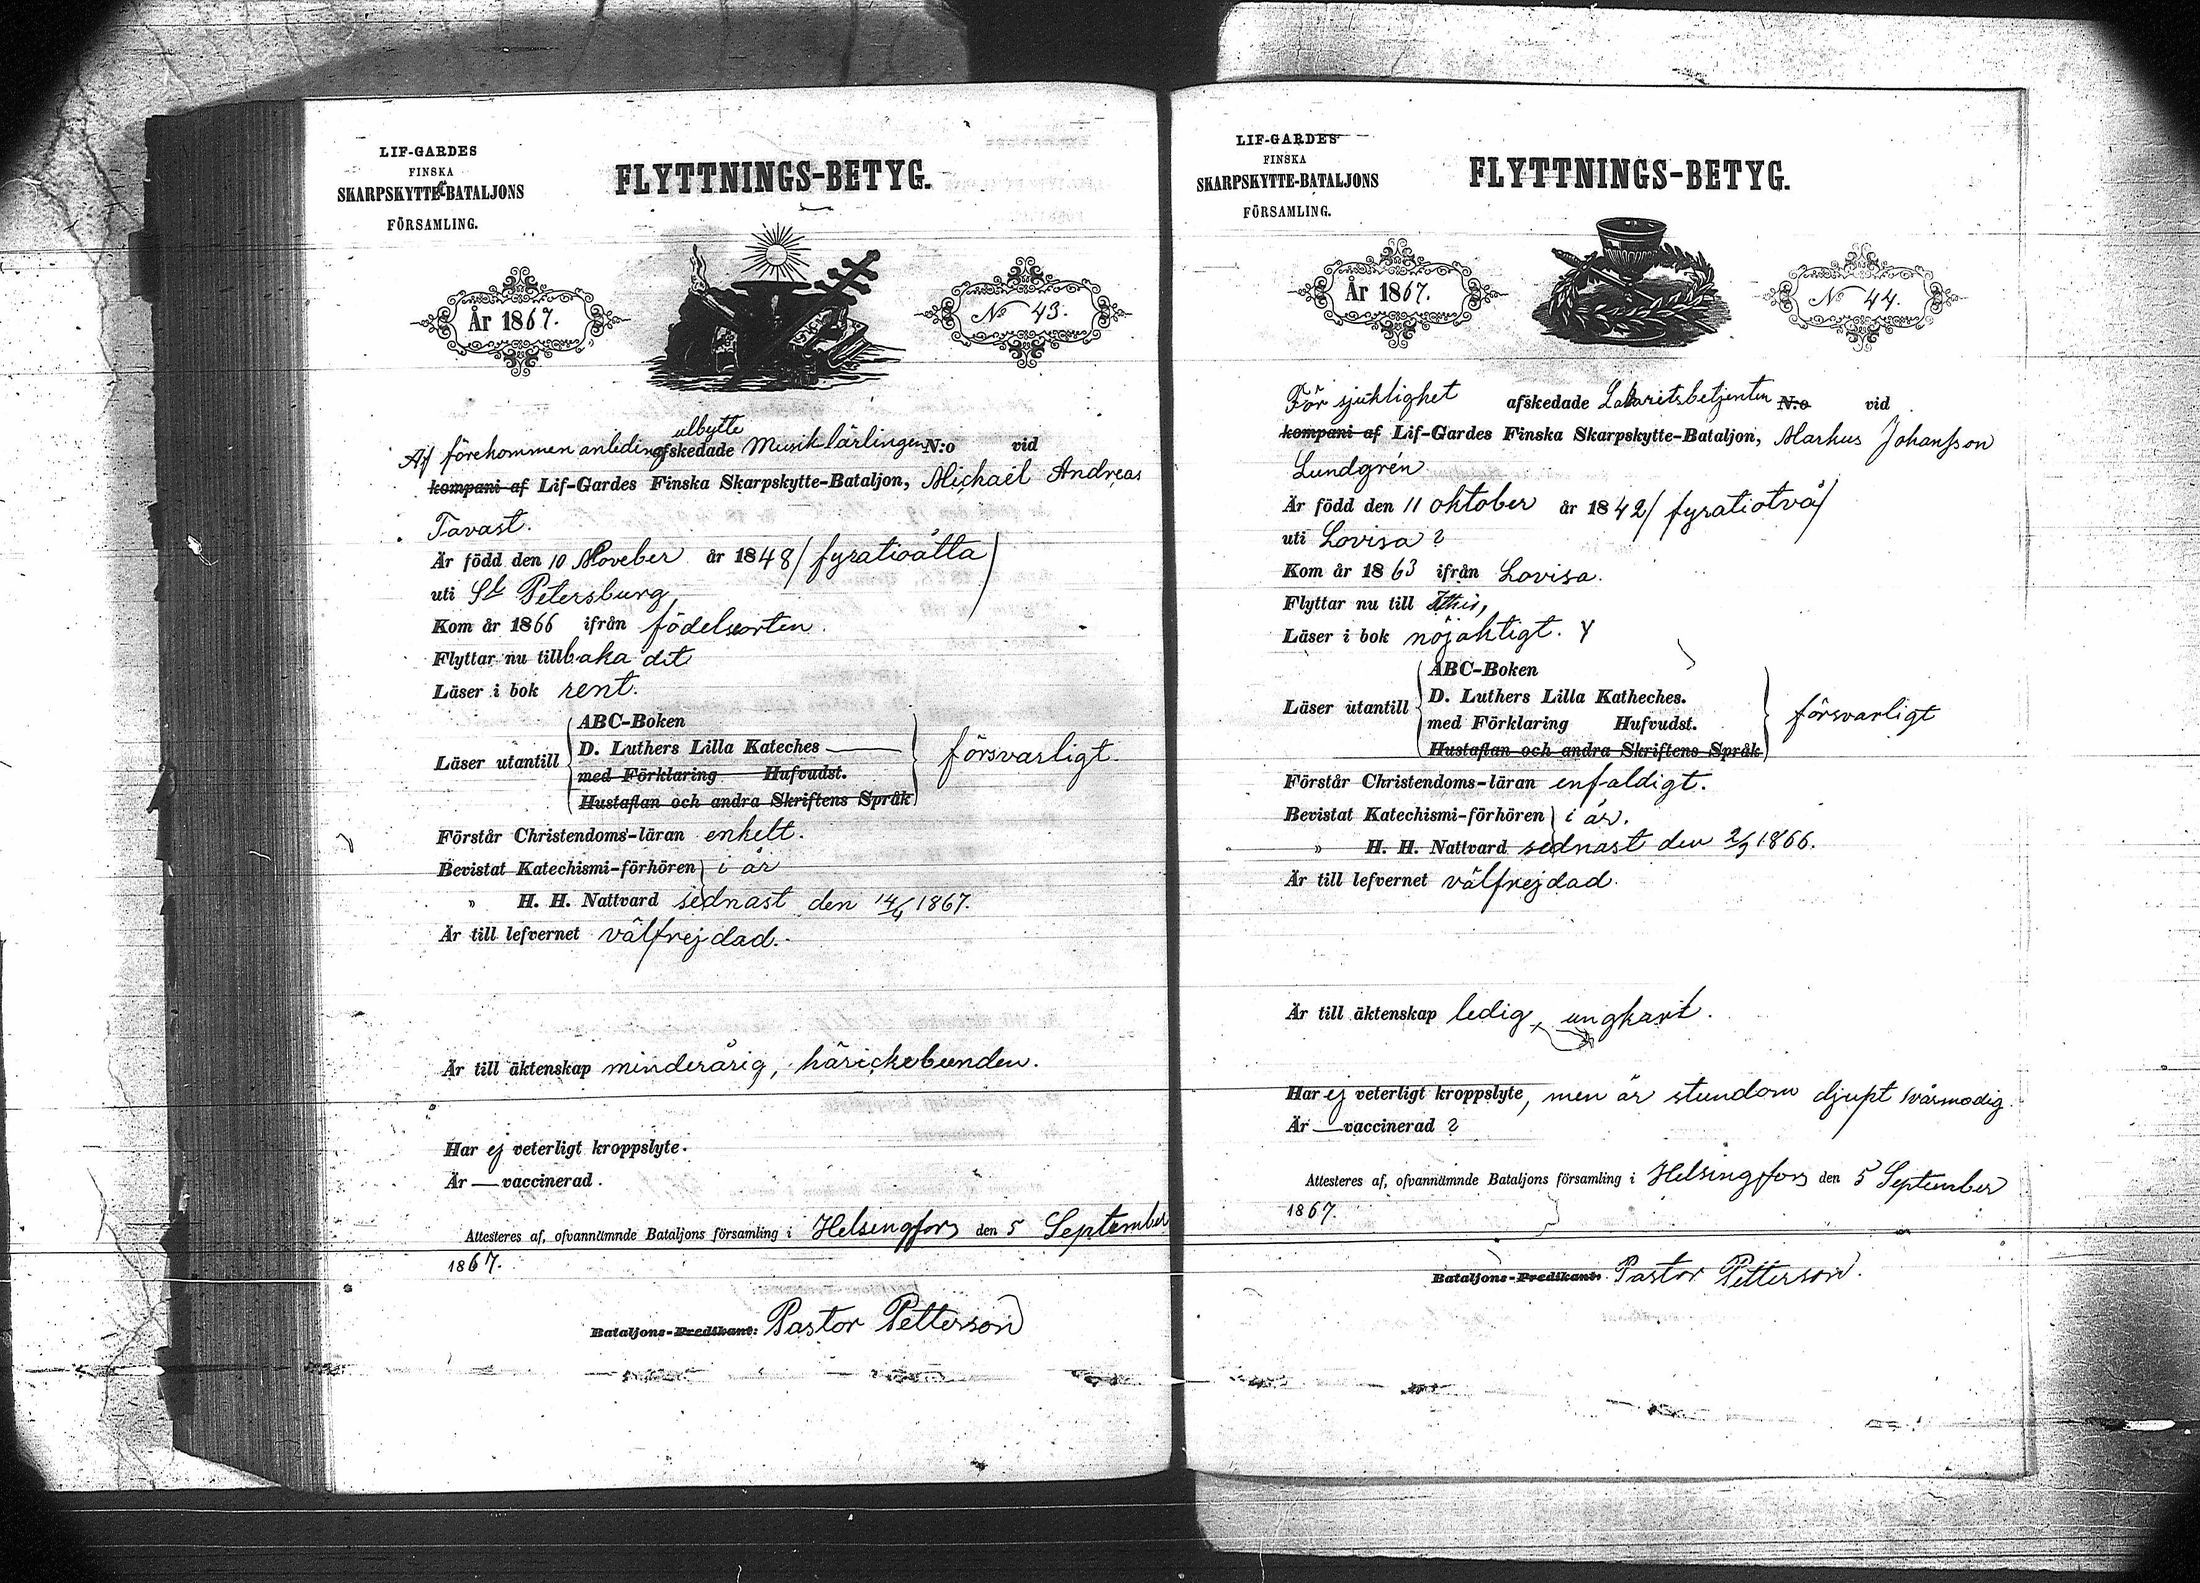 LIF-GARDES
FINSKA
SKARPSKYTTE-BATALJONS
FÖRSAMLING.
FLYTTNINGS-BETYG.
År 1867.
No 43.
utbytte
Af förekommen anleding afskedade Musik lärlingen N:o vid
kompani af Lif-Gardes Finska Skarpskytte-Bataljon, Michaël Andreas
Tavast.
Är född den 10 Noveber år 1848 (fyratioåtta)
uti St Petersburg
Kom år 1866 ifrån födelseorten.
Flyttar nu tillbaka dit
Läser i bok rent.
ABC-Boken
D. Luthers Lilla Kateches
Läser utantill försvarligt.
med Förklaring Hufvudst.
Hustaflan och andra Skriftens Språk
Förstår Christendoms-läran enkelt.
Bevistat Katechismi-förhören i år
" H. H. Nattvard sednast den 14/4 1867.
Är till lefvernet välfrejdad.
Är till äktenskap minderårig, härickebunden.
Har ej veterligt kroppslyte.
Är — vaccinerad.
Attesteres af, ofvannämnde Bataljons församling i Helsingfors den 5 September
1867.
Bataljons-Predikant: Pastor Petterson
LIF-GARDES
FINSKA
SKARPSKYTTE-BATALJONS
FÖRSAMLING.
FLYTTNINGS-BETYG.
År 1867.
No 44.
För sjuklighet afskedade Lazaritsbetjenten N:o vid
kompani af Lif-Gardes Finska Skarpskytte-Bataljon, Markus Johansson
Lundgrén
Är född den 11 oktober år 1842 (fyratiotvå)
uti Lovisa ?
Kom år 1863 ifrån Lovisa.
Flyttar nu till
Läser i bok nöjaktigt.
ABC-Boken
D. Luthers Lilla Katheches.
Läser utantill försvarligt
med Förklaring Hufvudst.
Hustaflan och andra Skriftens Språk
Förstår Christendoms-läran enfaldigt.
Bevistat Katechismi-förhören i år.
" H. H. Nattvard sednast den 2/9 1866.
Är till lefvernet välfrejdad.
Är till äktenskap ledig, ungkarl.
Har ej veterligt kroppslyte, men är stundom djupt svårmodig.
Är — vaccinerad ?
Attesteres af, ofvannämnde Bataljons församling i Helsingfors den 5 September
1867.
Bataljons-Predikant: Pastor Petterson.